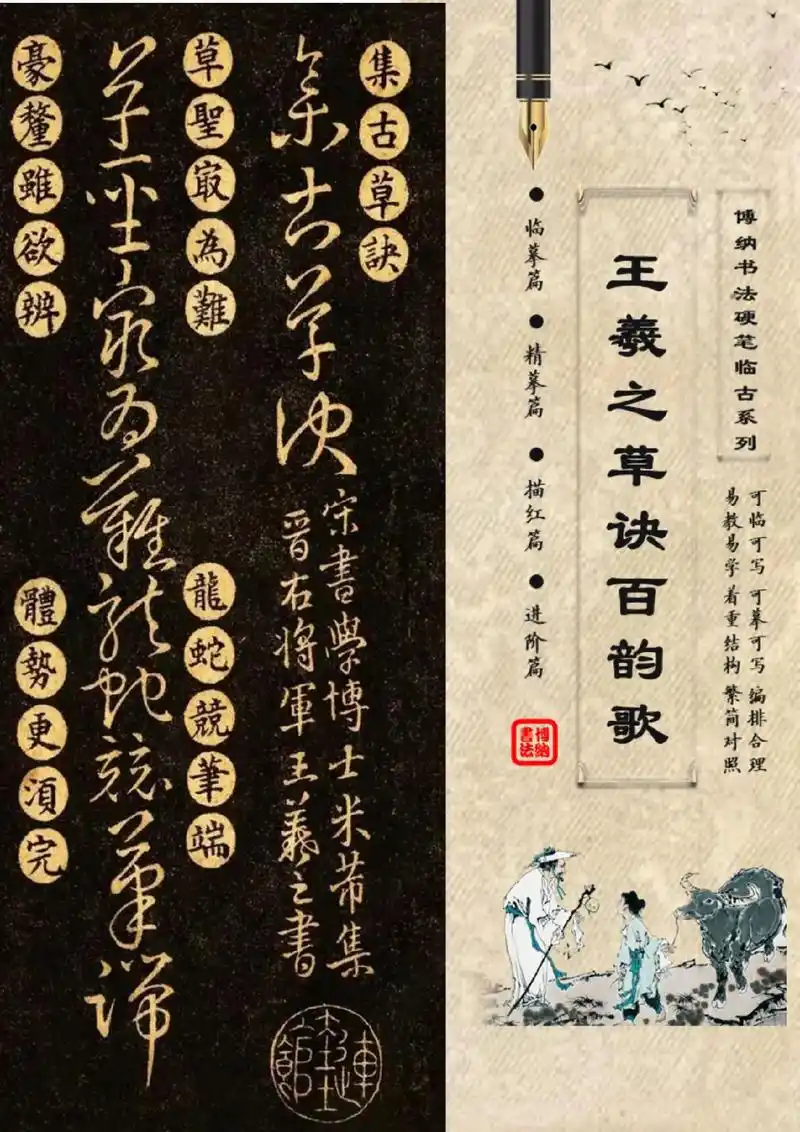 博纳书法硬笔临古系列
可临可写 可摹可写 编排合理
易教易学 着重结构 繁简对照
王羲之草诀百韵歌
● 临摹篇 ● 精摹篇 ● 描红篇 ● 进阶篇
博纳
書法
集古草訣
集古草訣
宋書學博士米芾集
晋右将軍王羲之書
草聖㝡為難 龍蛇競筆端
草聖㝡為難龍蛇競筆端
豪釐雖欲辨 體勢更湏完